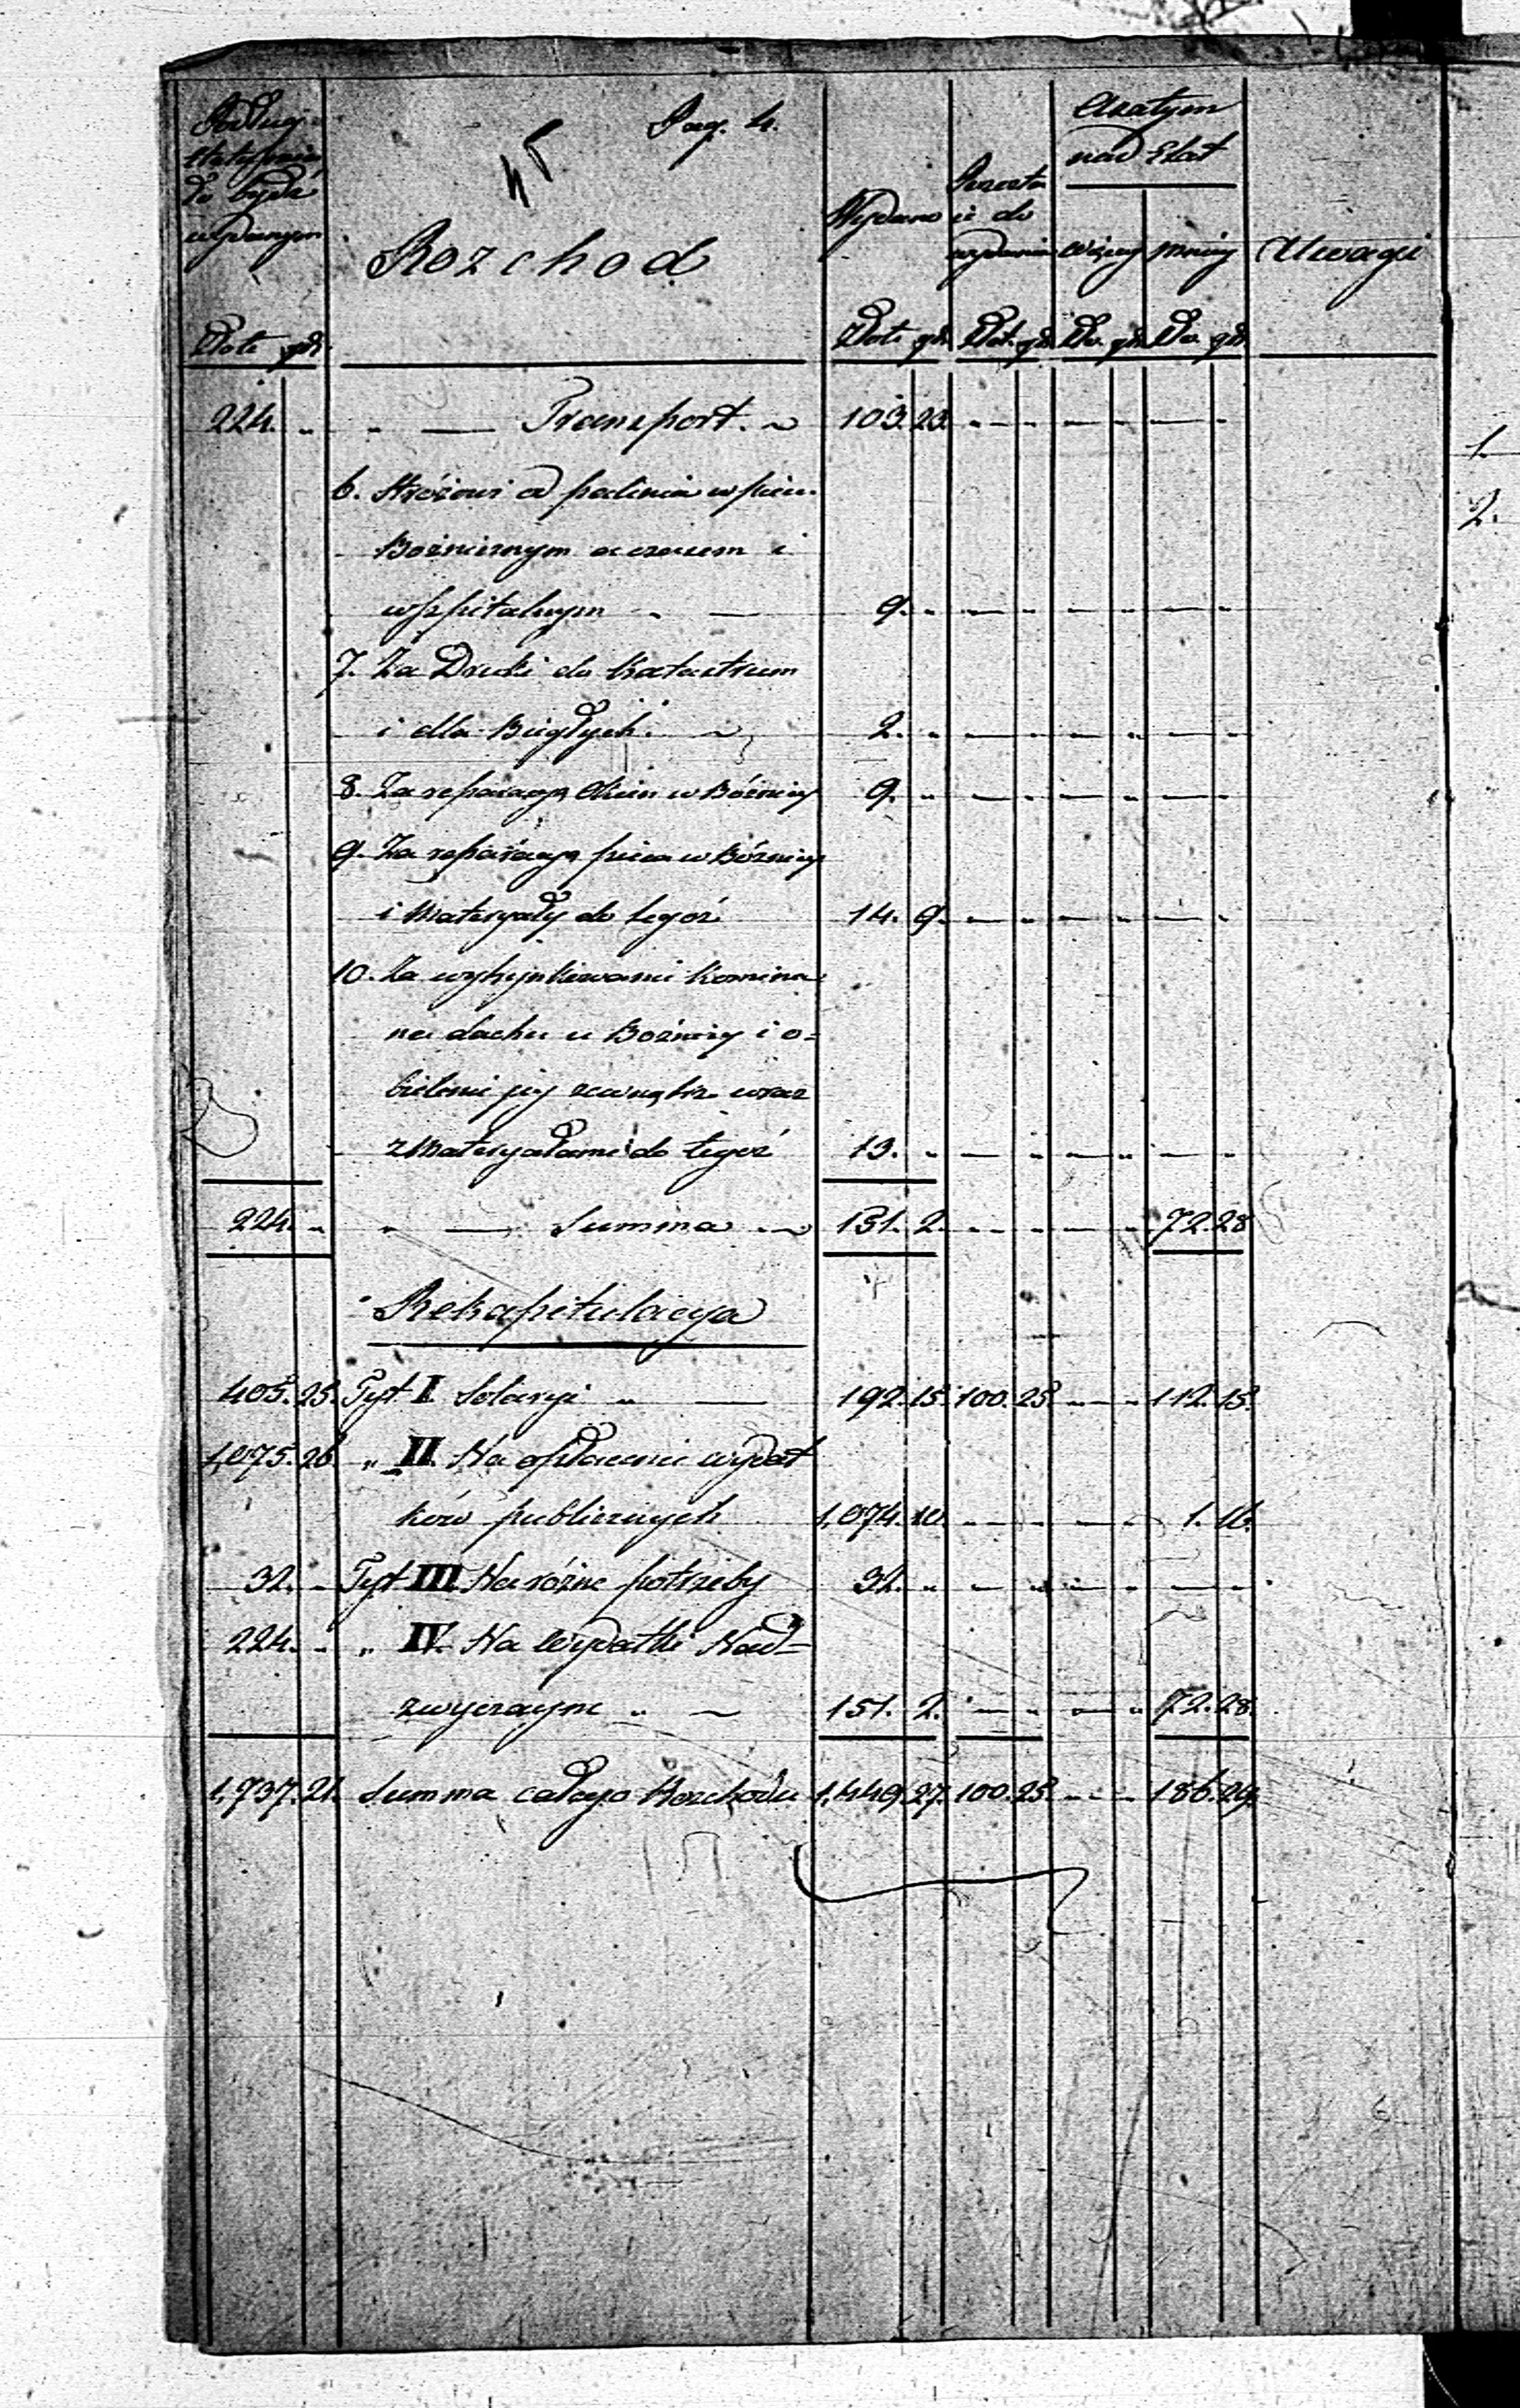 Pag. 4.
Podług
Etatu ma
być
wydanym
Rozchod
Wydano
Pozosta
ie do
wydania
A zatym
nad Etat
więcey
mniey
Uwagi
Złote gr.
Złote gr. Złot. gr. Zło. gr. Zło. gr.
224. " " — Transport. ~ 103. 23.
6. Stróżowi od palenia w piecu
Bożnicznym a czasem i
w szpitalnym " — 9. "
7. Za Druki do Katastrum
i dla Biegłych. ~ 2. "
8. Za reparacyą Okien w Bóżnicy 9. "
9. Za reparacyą pieca w Bóżnicy
i Materyały do tegoż 14. 9.
10. Za wytynkowanie Komina
na dachu u Bożnicy i o=
bielenie jey zewnątrz wraz
z Materyałami do tegoż 13. "
224. " " — Summa ~ 151. 2. 72. 28
Rekapitulacya
405. 25. Tyt. I. Solaryi " — 192. 15. 100. 25. 112. 15.
1,075. 26 " II. Na opłacenie wydat
ków publicznych 1,074. 10. 1. 16.
32. " Tyt. III. Na różne potrzeby 32. "
224. " " IV. Na Wydatki Nad=
zwyczayne " ~ 151. 2. 72. 28.
1,737. 21. Summa całego Rozchodu 1,449. 27. 100. 25. 186. 29.
1.
2.